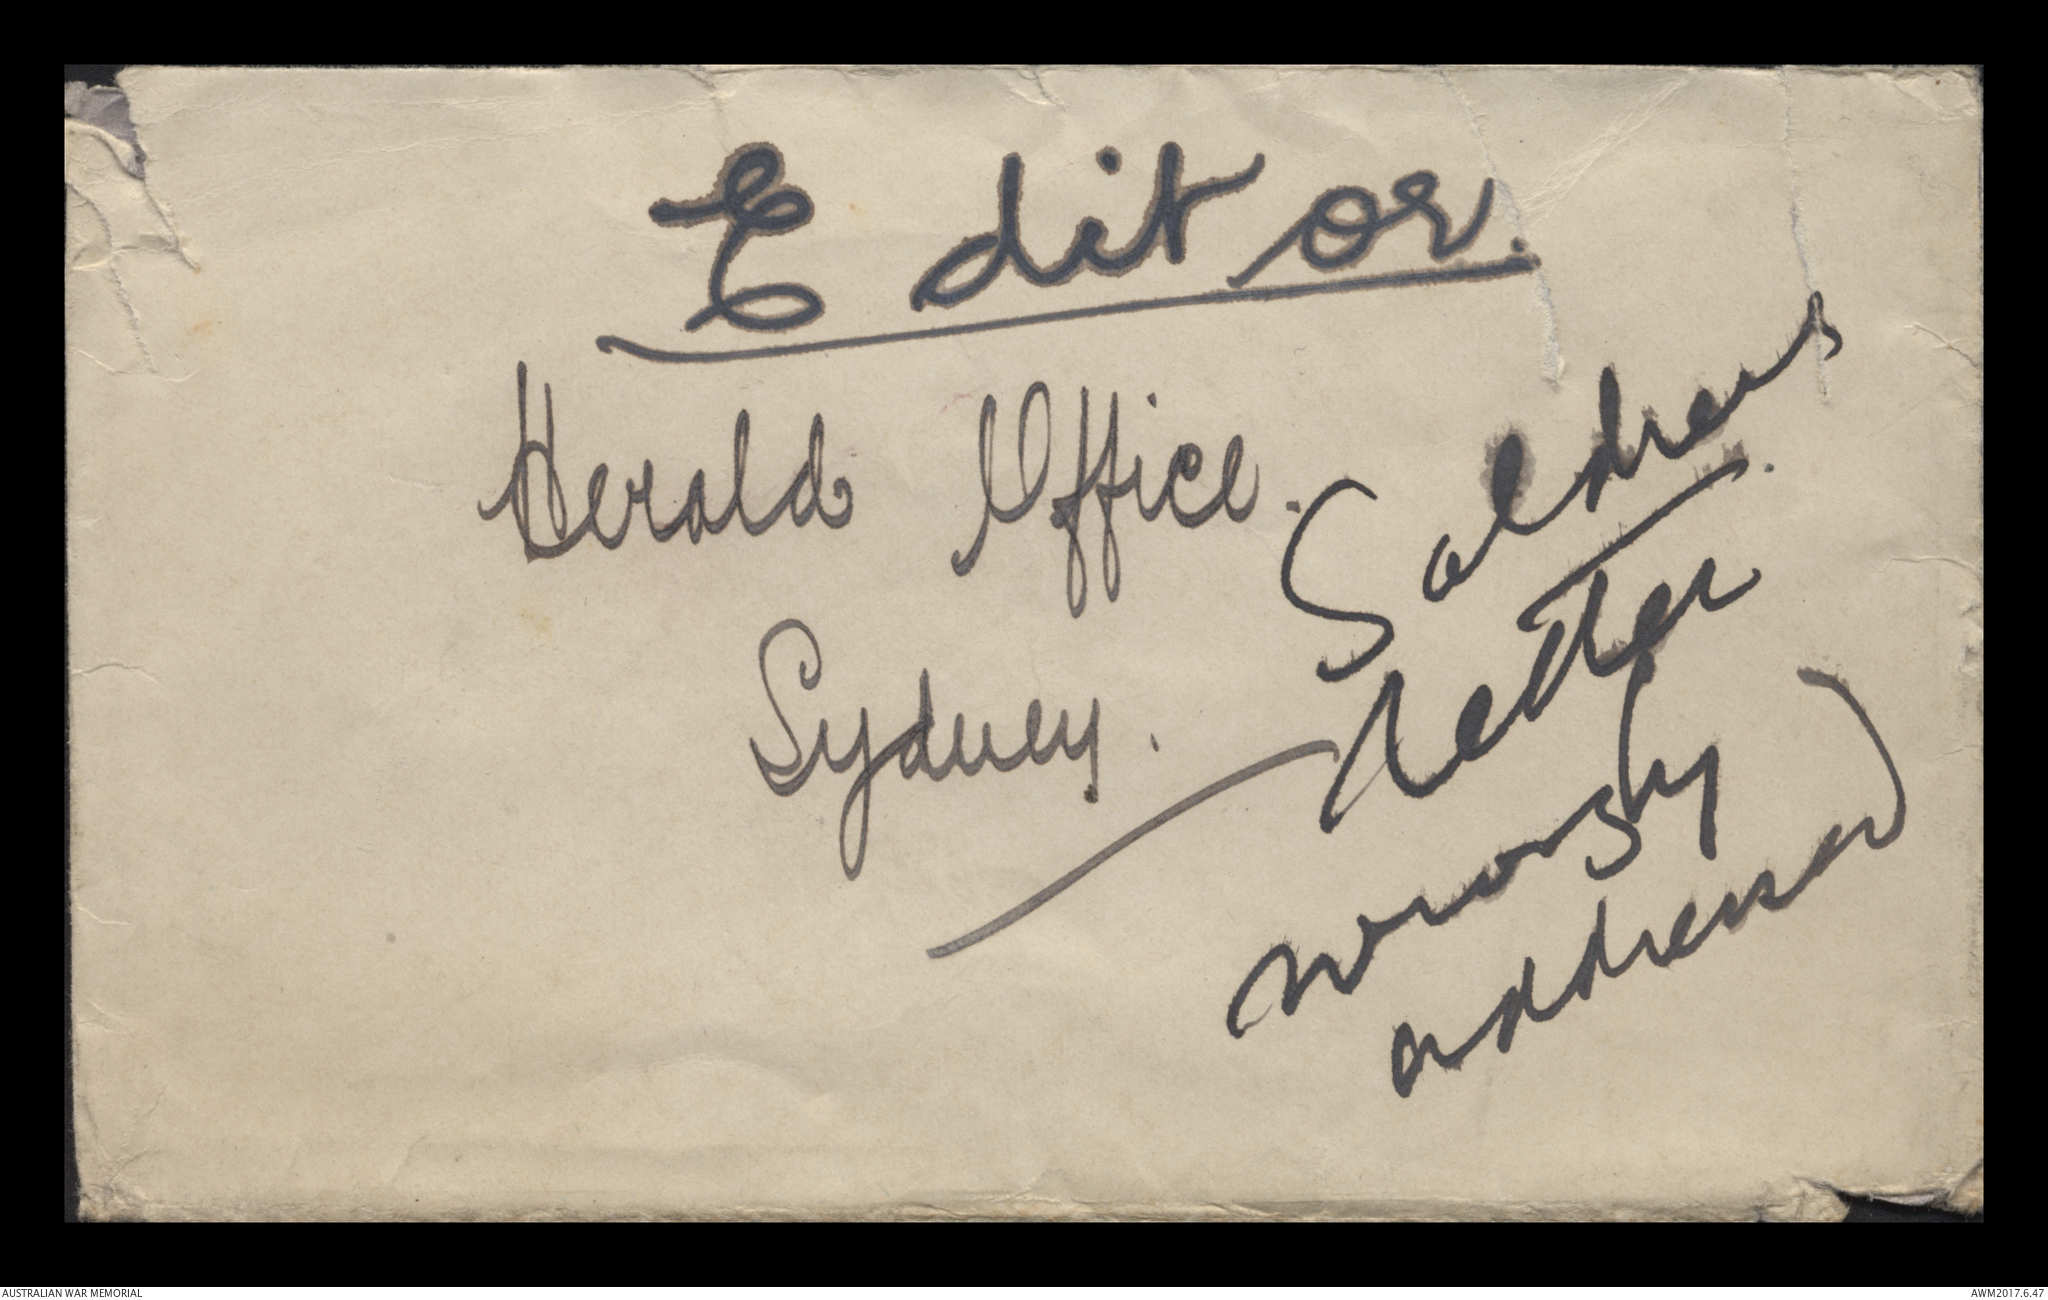 Editor.
Herald Office.
Sydney.
Soldiers
letter
wrongly
addressed
AUSTRALIAN WAR MEMORIAL
AWM2017.6.47